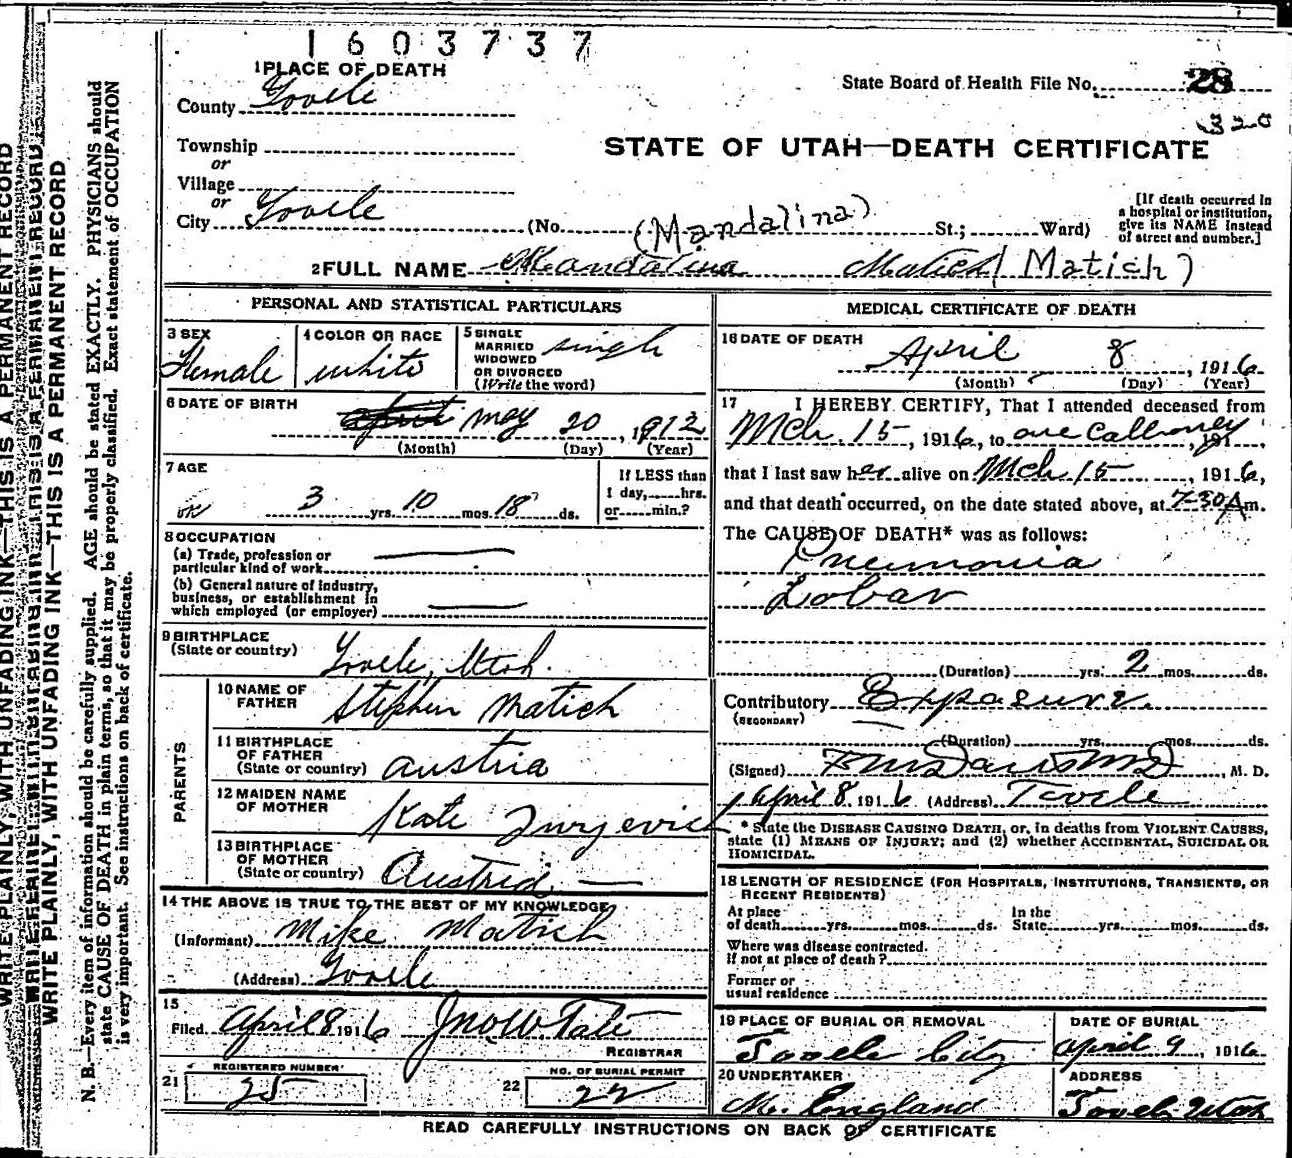 1603737
1 PLACE OF DEATH
County Tooele
State Board of Health File No. 28
320
Township
or
Village
or
City Tooele
STATE OF UTAH—DEATH CERTIFICATE
(No. St.; Ward)
(Mandalina)
[If death occurred in
a hospital or institution,
give its NAME instead
of street and number.]
2 FULL NAME Mandalina Matich (Matich)
PERSONAL AND STATISTICAL PARTICULARS
3 SEX
Female
4 COLOR OR RACE
white
5 SINGLE
MARRIED
WIDOWED
OR DIVORCED
(Write the word)
single
6 DATE OF BIRTH
april may 20, 1912
(Month) (Day) (Year)
7 AGE
ok 3 yrs. 10 mos. 18 ds.
If LESS than
1 day, hrs.
or min.?
8 OCCUPATION
(a) Trade, profession or
particular kind of work
(b) General nature of industry,
business, or establishment in
which employed (or employer)
9 BIRTHPLACE
(State or country) Tooele, Utah.
PARENTS
10 NAME OF
FATHER Stephen Matich
11 BIRTHPLACE
OF FATHER
(State or country) Austria
12 MAIDEN NAME
OF MOTHER Kate Jurjevich
13 BIRTHPLACE
OF MOTHER
(State or country) Austria
14 THE ABOVE IS TRUE TO THE BEST OF MY KNOWLEDGE
(Informant) Mike Matich
(Address) Tooele
15
Filed April 8 1916
REGISTRAR
21 REGISTERED NUMBER
25
22 NO. OF BURIAL PERMIT
22
MEDICAL CERTIFICATE OF DEATH
16 DATE OF DEATH
April 8, 1916
(Month) (Day) (Year)
17 I HEREBY CERTIFY, That I attended deceased from
Mch 15, 1916, to one call only, 191,
that I last saw her alive on Mch 15 1916,
and that death occurred, on the date stated above, at 7-30 A m.
The CAUSE OF DEATH* was as follows:
Pneumonia
Lobar
(Duration) yrs. 2 mos. ds.
Contributory Exposure
(SECONDARY)
(Duration) yrs. mos. ds.
(Signed) F M Davis M D, M. D.
April 8. 1916 (Address) Tooele
* State the DISEASE CAUSING DEATH, or, in deaths from VIOLENT CAUSES,
state (1) MEANS OF INJURY; and (2) whether ACCIDENTAL, SUICIDAL OR
HOMICIDAL.
18 LENGTH OF RESIDENCE (FOR HOSPITALS, INSTITUTIONS, TRANSIENTS, OR
RECENT RESIDENTS)
At place
of death yrs. mos. ds.
In the
State yrs. mos. ds.
Where was disease contracted.
If not at place of death?
Former or
usual residence
19 PLACE OF BURIAL OR REMOVAL
Tooele City
DATE OF BURIAL
April 9, 1916
20 UNDERTAKER
M. England
ADDRESS
Tooele Utah
READ CAREFULLY INSTRUCTIONS ON BACK OF CERTIFICATE
WRITE PLAINLY, WITH UNFADING INK—THIS IS A PERMANENT RECORD
WRITE PLAINLY, WITH UNFADING INK—THIS IS A PERMANENT RECORD
N. B.—Every item of information should be carefully supplied. AGE should be stated EXACTLY. PHYSICIANS should
state CAUSE OF DEATH in plain terms, so that it may be properly classified. Exact statement of OCCUPATION
is very important. See instructions on back of certificate.